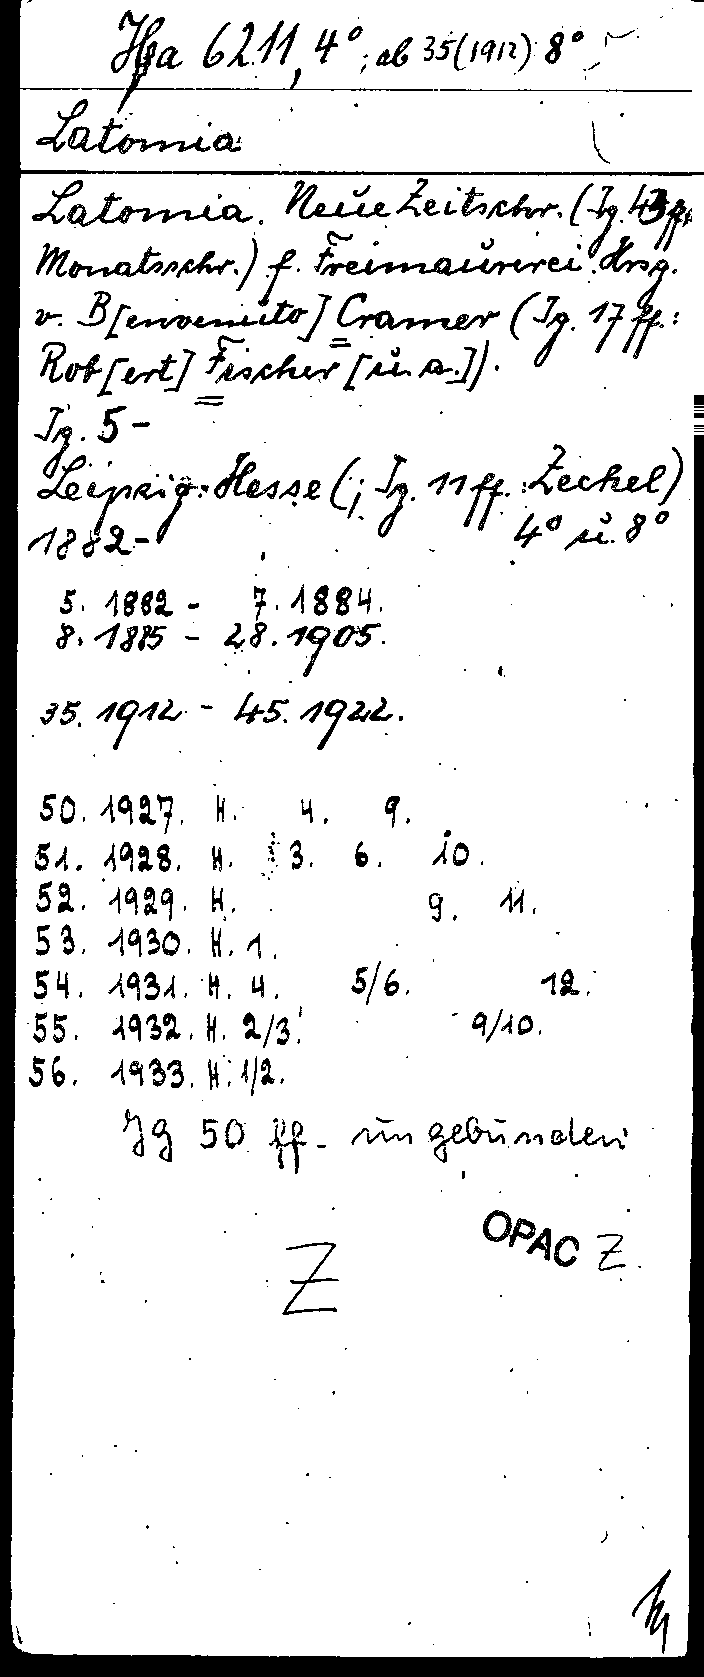 Hpa 6211, 4°; ab 35(1912) 8°
Latomia
Latomia. Neue Zeitschr. (Jg. 43 ff.
Monatsschr.) f. Freimaurerei. Hrsg.
v. B[envenuto] Cramer (Jg. 17 ff.:
Rob[ert] Fischer [u. a.]).
Jg. 5-
Leipzig: Hesse (; Jg. 11 ff.: Zechel)
1882- 4° u. 8°
5. 1882 - 7. 1884.
8. 1885 - 28. 1905.
35. 1912 - 45. 1922.
50. 1927. H. 4. 9.
51. 1928. H. 3. 6. 10.
52. 1929. H. 9. 11.
53. 1930. H. 1.
54. 1931. H. 4. 5/6. 12.
55. 1932. H. 2/3. 9/10.
56. 1933. H. 1/2.
Jg 50 ff. ungebunden
OPAC Z
Z